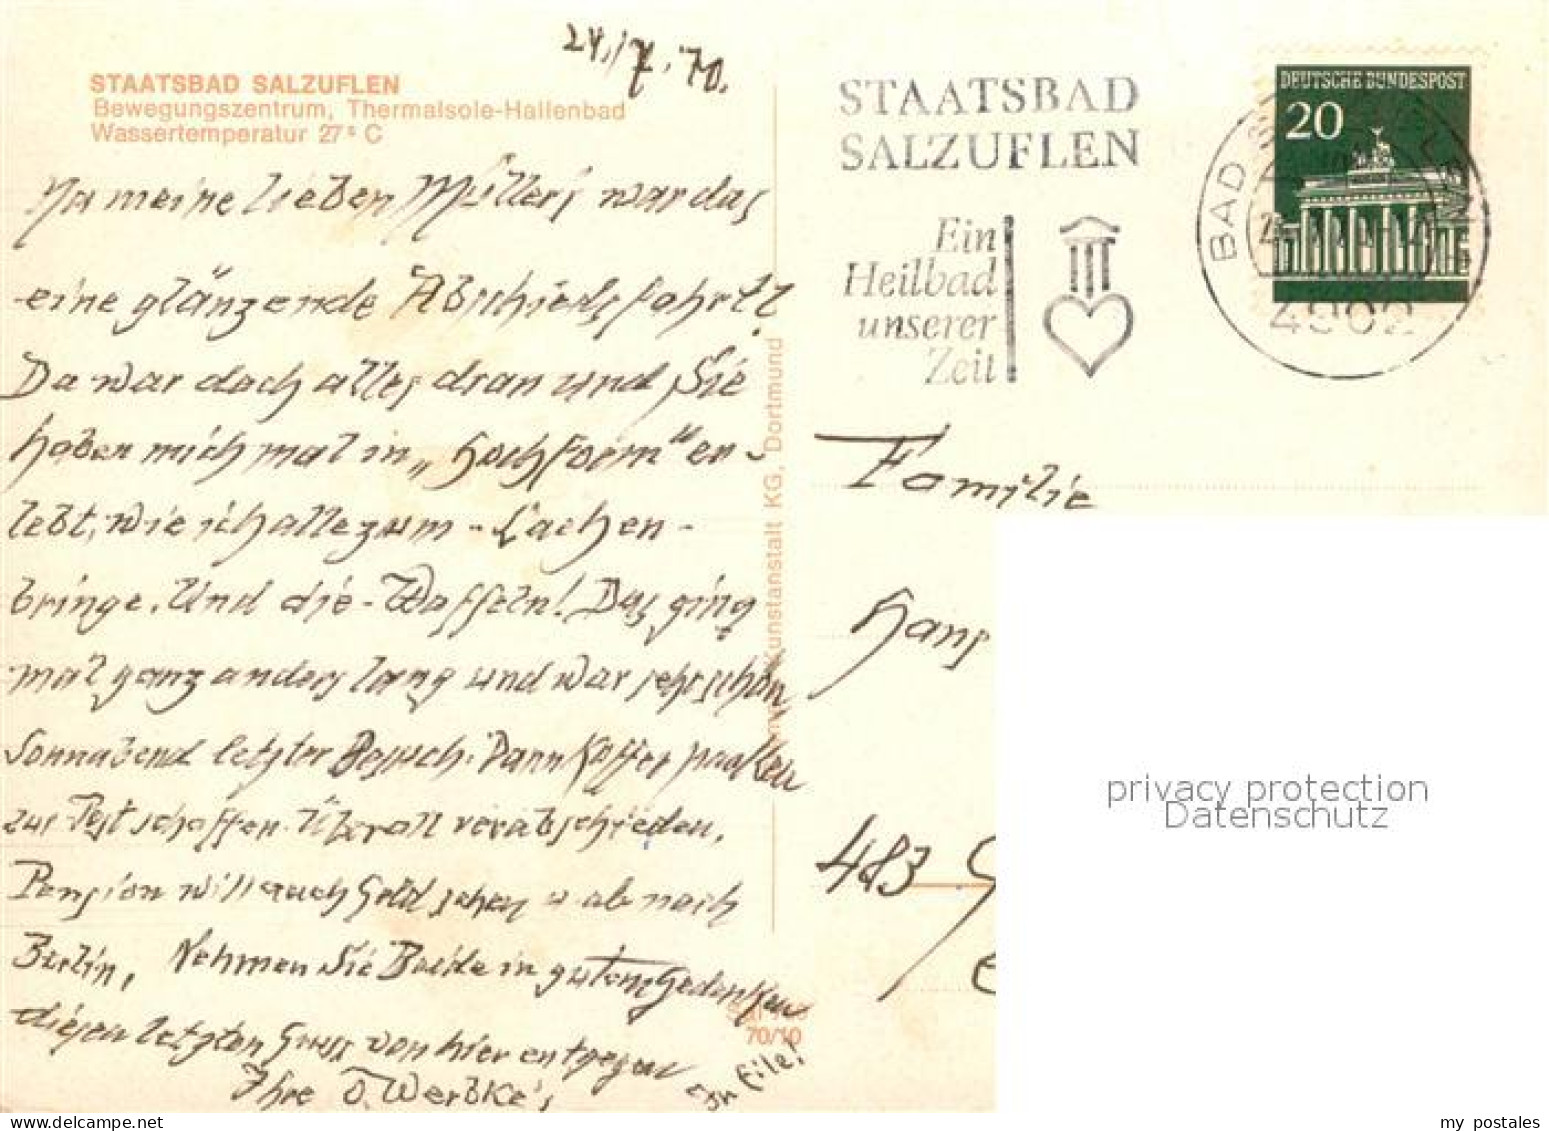 24./7.70.
STAATSBAD SALZUFLEN
Bewegungszentrum, Thermalsole-Hallenbad
Wassertemperatur 27° C
Na meine lieben Müllers war das
eine glänzende Abschiedsfahrt?
Da war doch alles dran und Sie
haben mich mal in „Hochform" er-
lebt, wie ich alle zum - Lachen -
bringe. Und die - Waffeln! Das ging
mal ganz anders lang und war sehr schön
Sonnabend letzter Besuch. Dann Koffer packen
zur Post schaffen. Überall verabschieden.
Pension will auch Geld sehen u ab nach
Berlin, Nehmen Sie Beide in gutem Gedenken
diesen letzten Gruss von hier entgegen
Ihre O. Werbke's
in Eile!
Kunstanstalt KG, Dortmund
70/10
STAATSBAD
SALZUFLEN
Ein
Heilbad
unserer
Zeit
DEUTSCHE BUNDESPOST
20
BAD
4902
Familie
Hans
483 G
privacy protection
Datenschutz
my postales